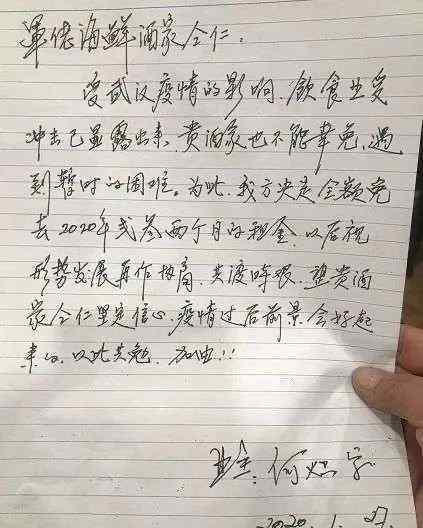 渔佬海鲜酒家仝仁:
受武汉疫情的影响,飲食业受
冲击已显露出来,贵酒家也不能幸免,遇
到暂时的困难。为此,我方决定全额免
去2020年弍叁两个月的租金,以后视
形势发展再作协商,共渡時艰,望贵酒
家仝仁坚定信心,疫情过后前景会好起
来的,以此共勉,加油!!
业主:何
2020.1.